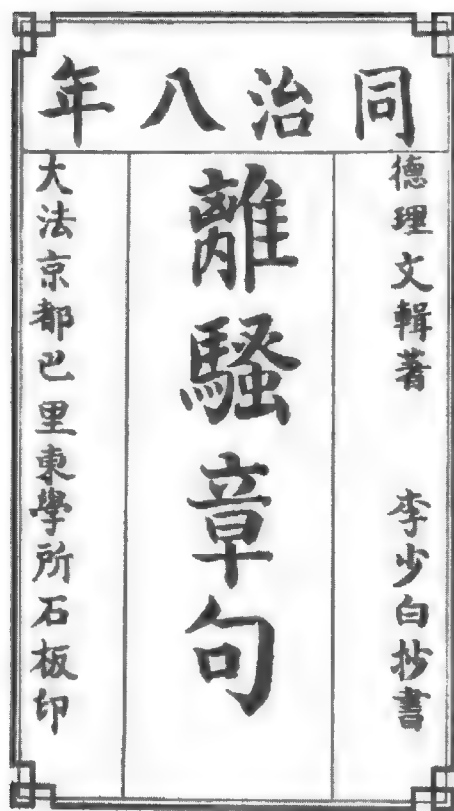 同治八年
德理文輯著 李少白抄書
離騷章句
大法京都巴里東學所石板印